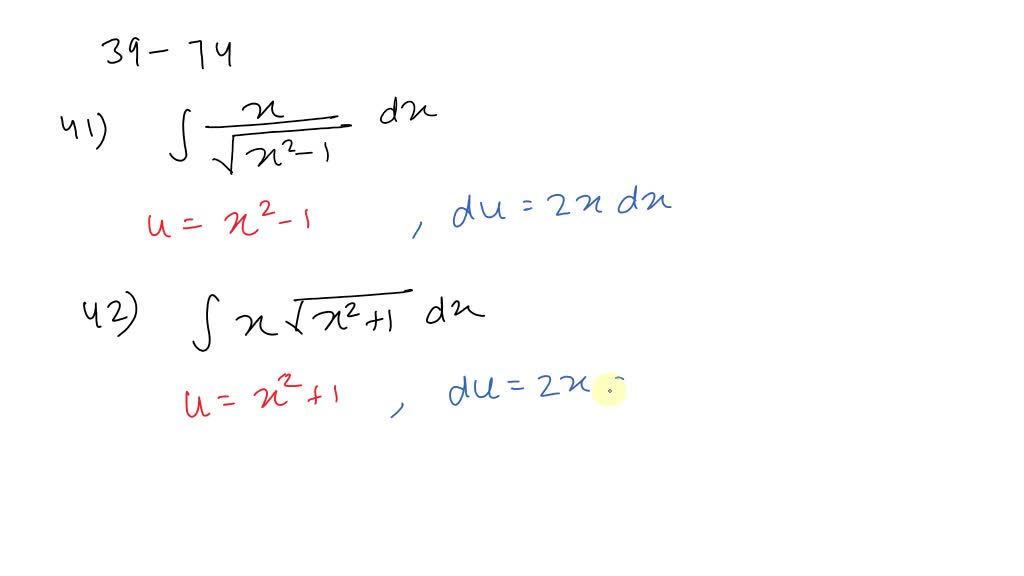 39 - 74
41) ∫ x/√(x²-1) dx
u = x²-1 , du = 2x dx
42) ∫ x √(x²+1) dx
u = x²+1 , du = 2x